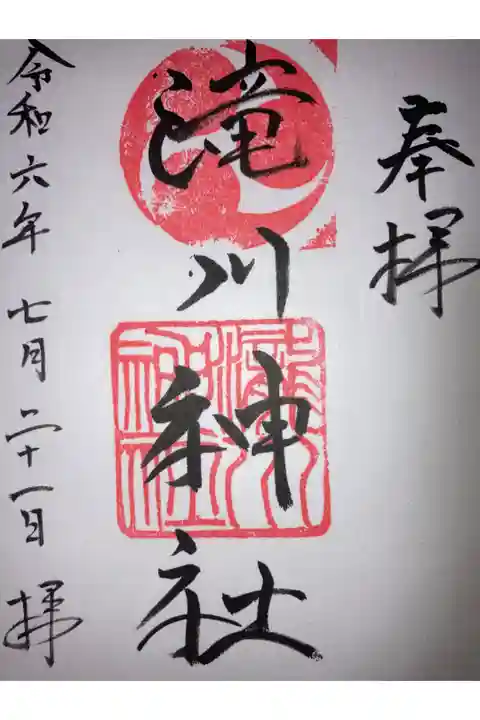 奉拝
滝川神社
瀧川神社
令和六年 七月二十一日 拝